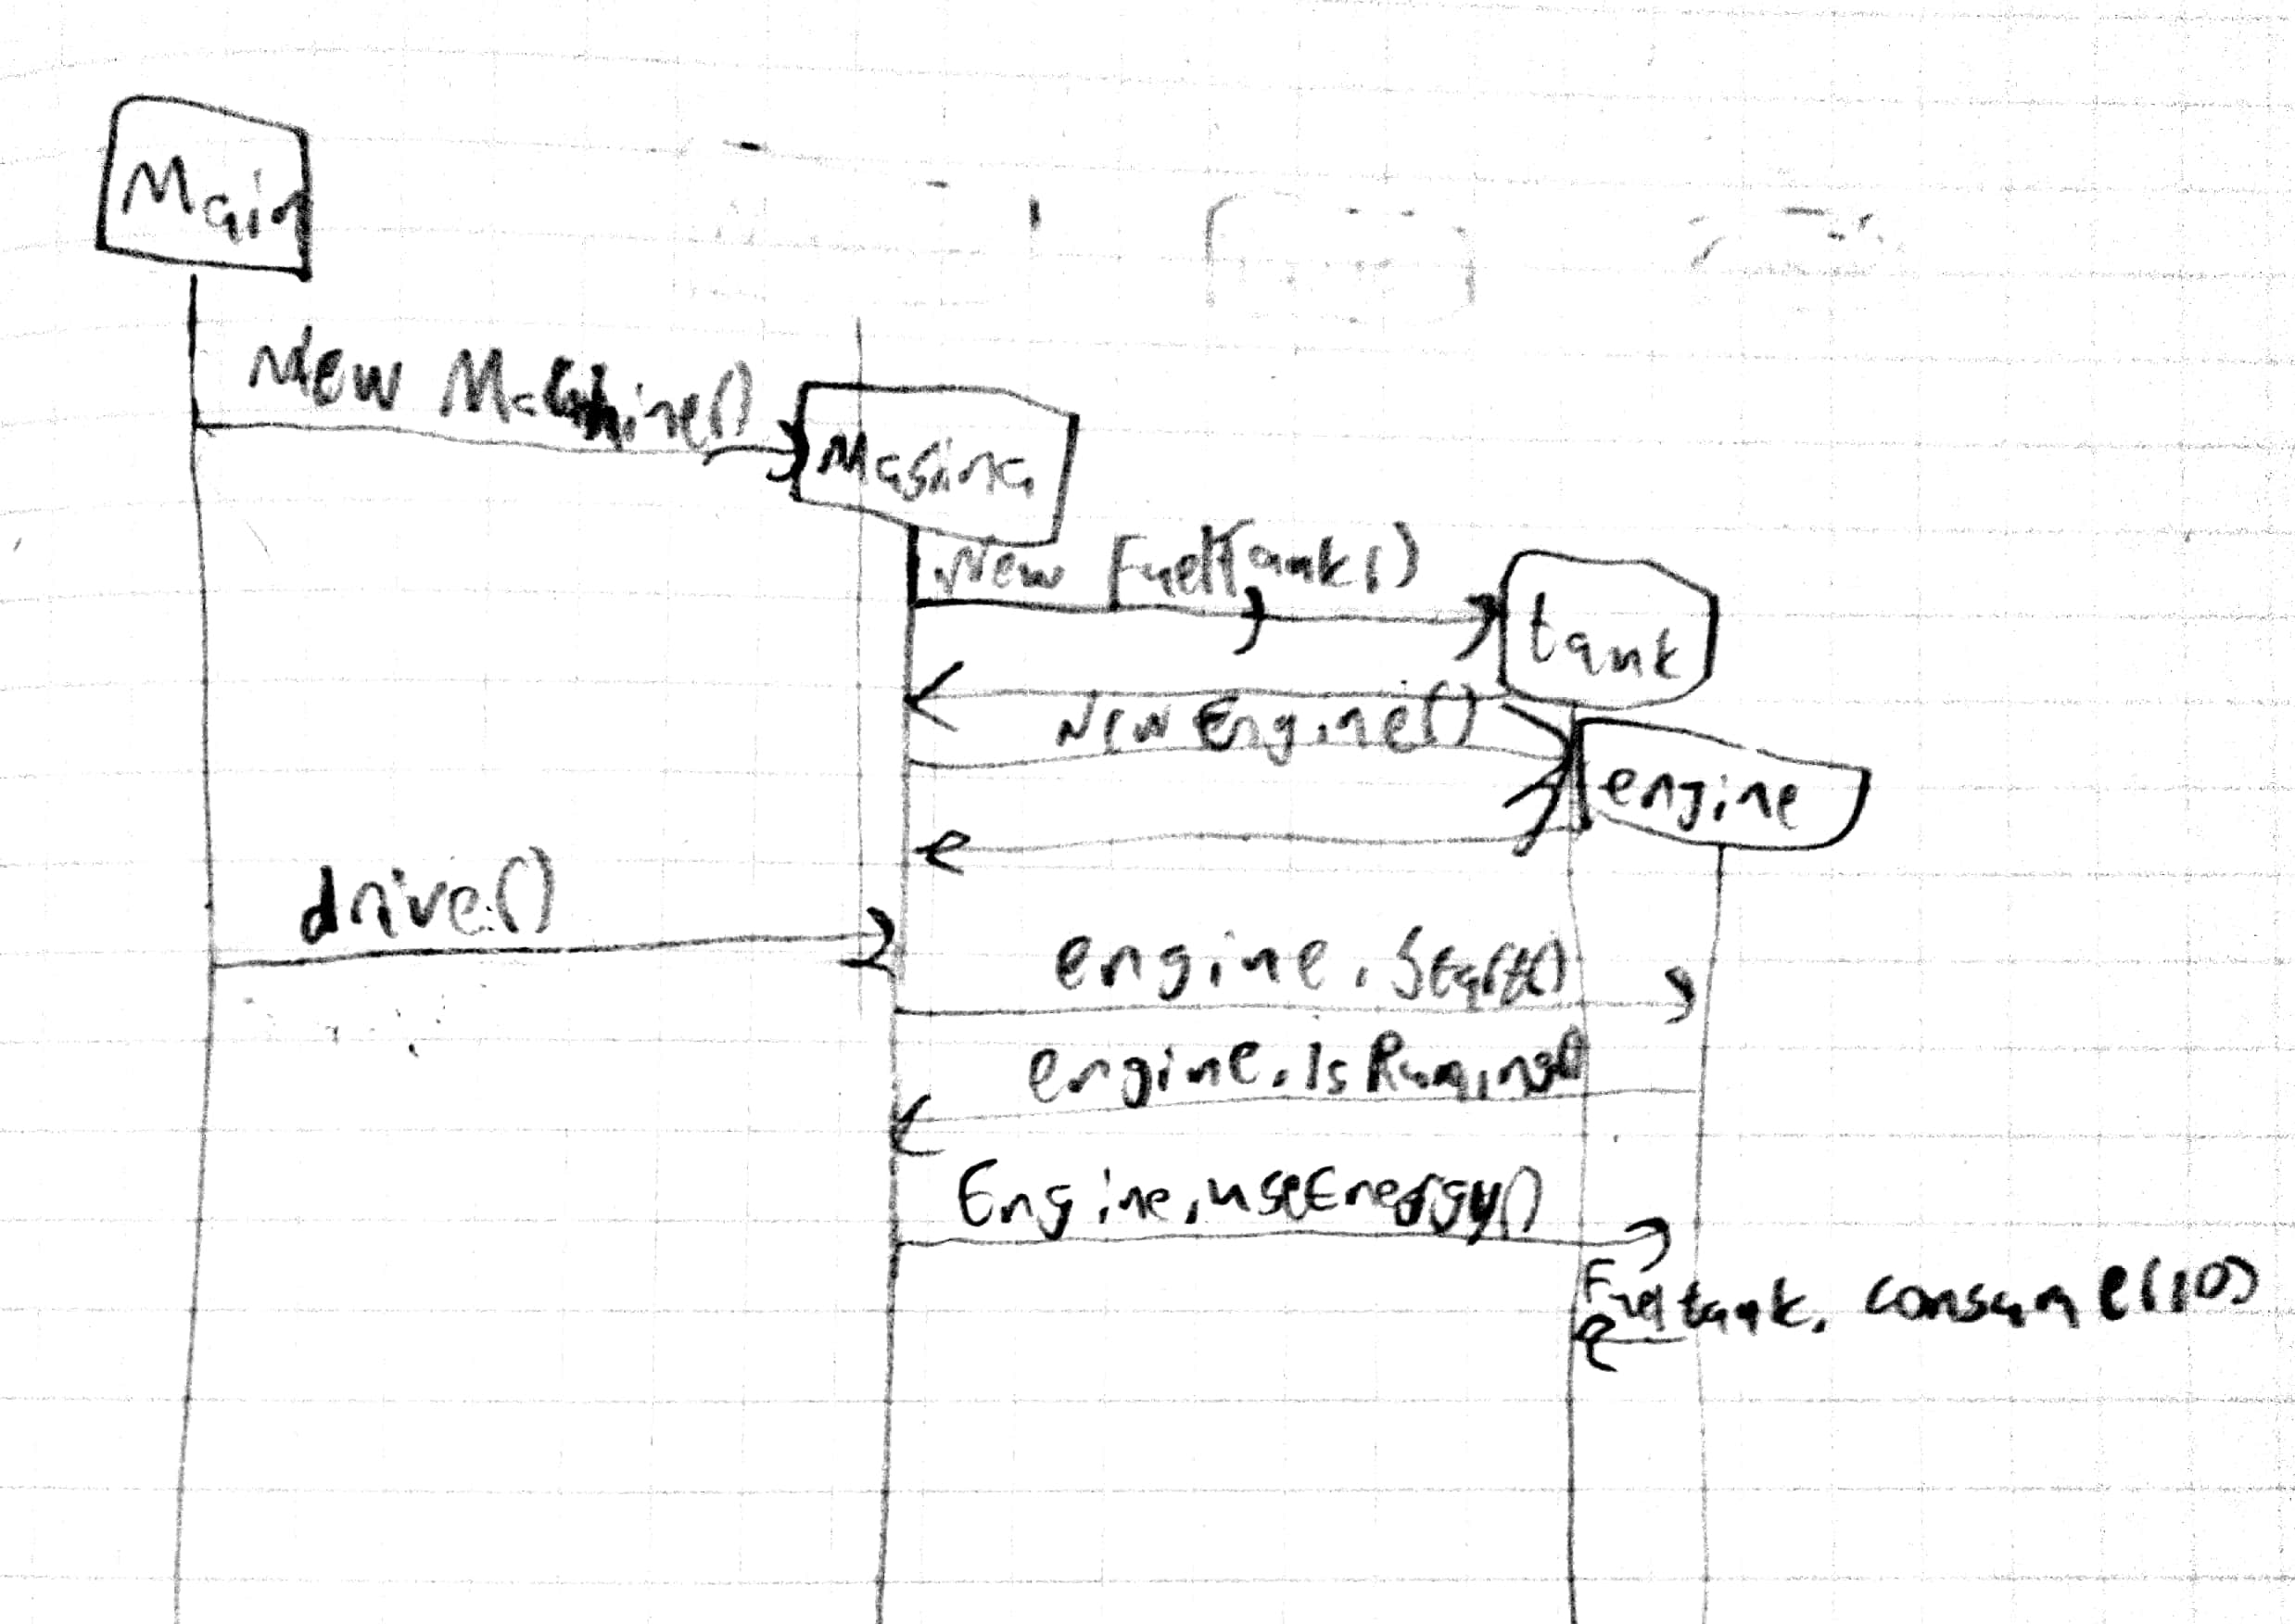 Main
New Machine()
Masina
New FuelTank()
tank
New Engine()
engine
drive()
engine.Start()
engine.IsRuning()
Engine.useEnergy()
Fueltank.consume(10)